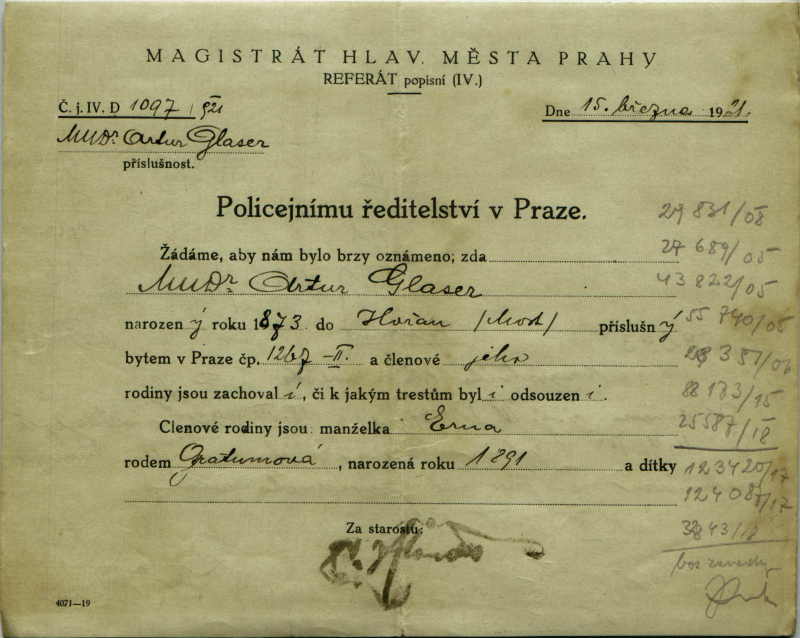 MAGISTRÁT HLAV. MĚSTA PRAHY
REFERÁT popisní (IV.)
Č. j. IV. D 1097 / 921
Dne 15. března 1921.
MUDr. Artur Glaser
příslušnost.
Policejnímu ředitelství v Praze.
29 831/08
Žádáme, aby nám bylo brzy oznámeno, zda
27 689/05
MUDr Artur Glaser
43 822/05
narozen ý roku 1873. do Hořan /Most/ příslušn ý
55 740/05
bytem v Praze čp. 1267-II. a členové jeho
rodiny jsou zachoval í, či k jakým trestům byl i odsouzen i.
88173/15
Členové rodiny jsou: manželka Erna
25587/18
rodem , narozená roku 1891 a dítky
123420/17
124087/17
Za starostu:
bez závady
4071—19